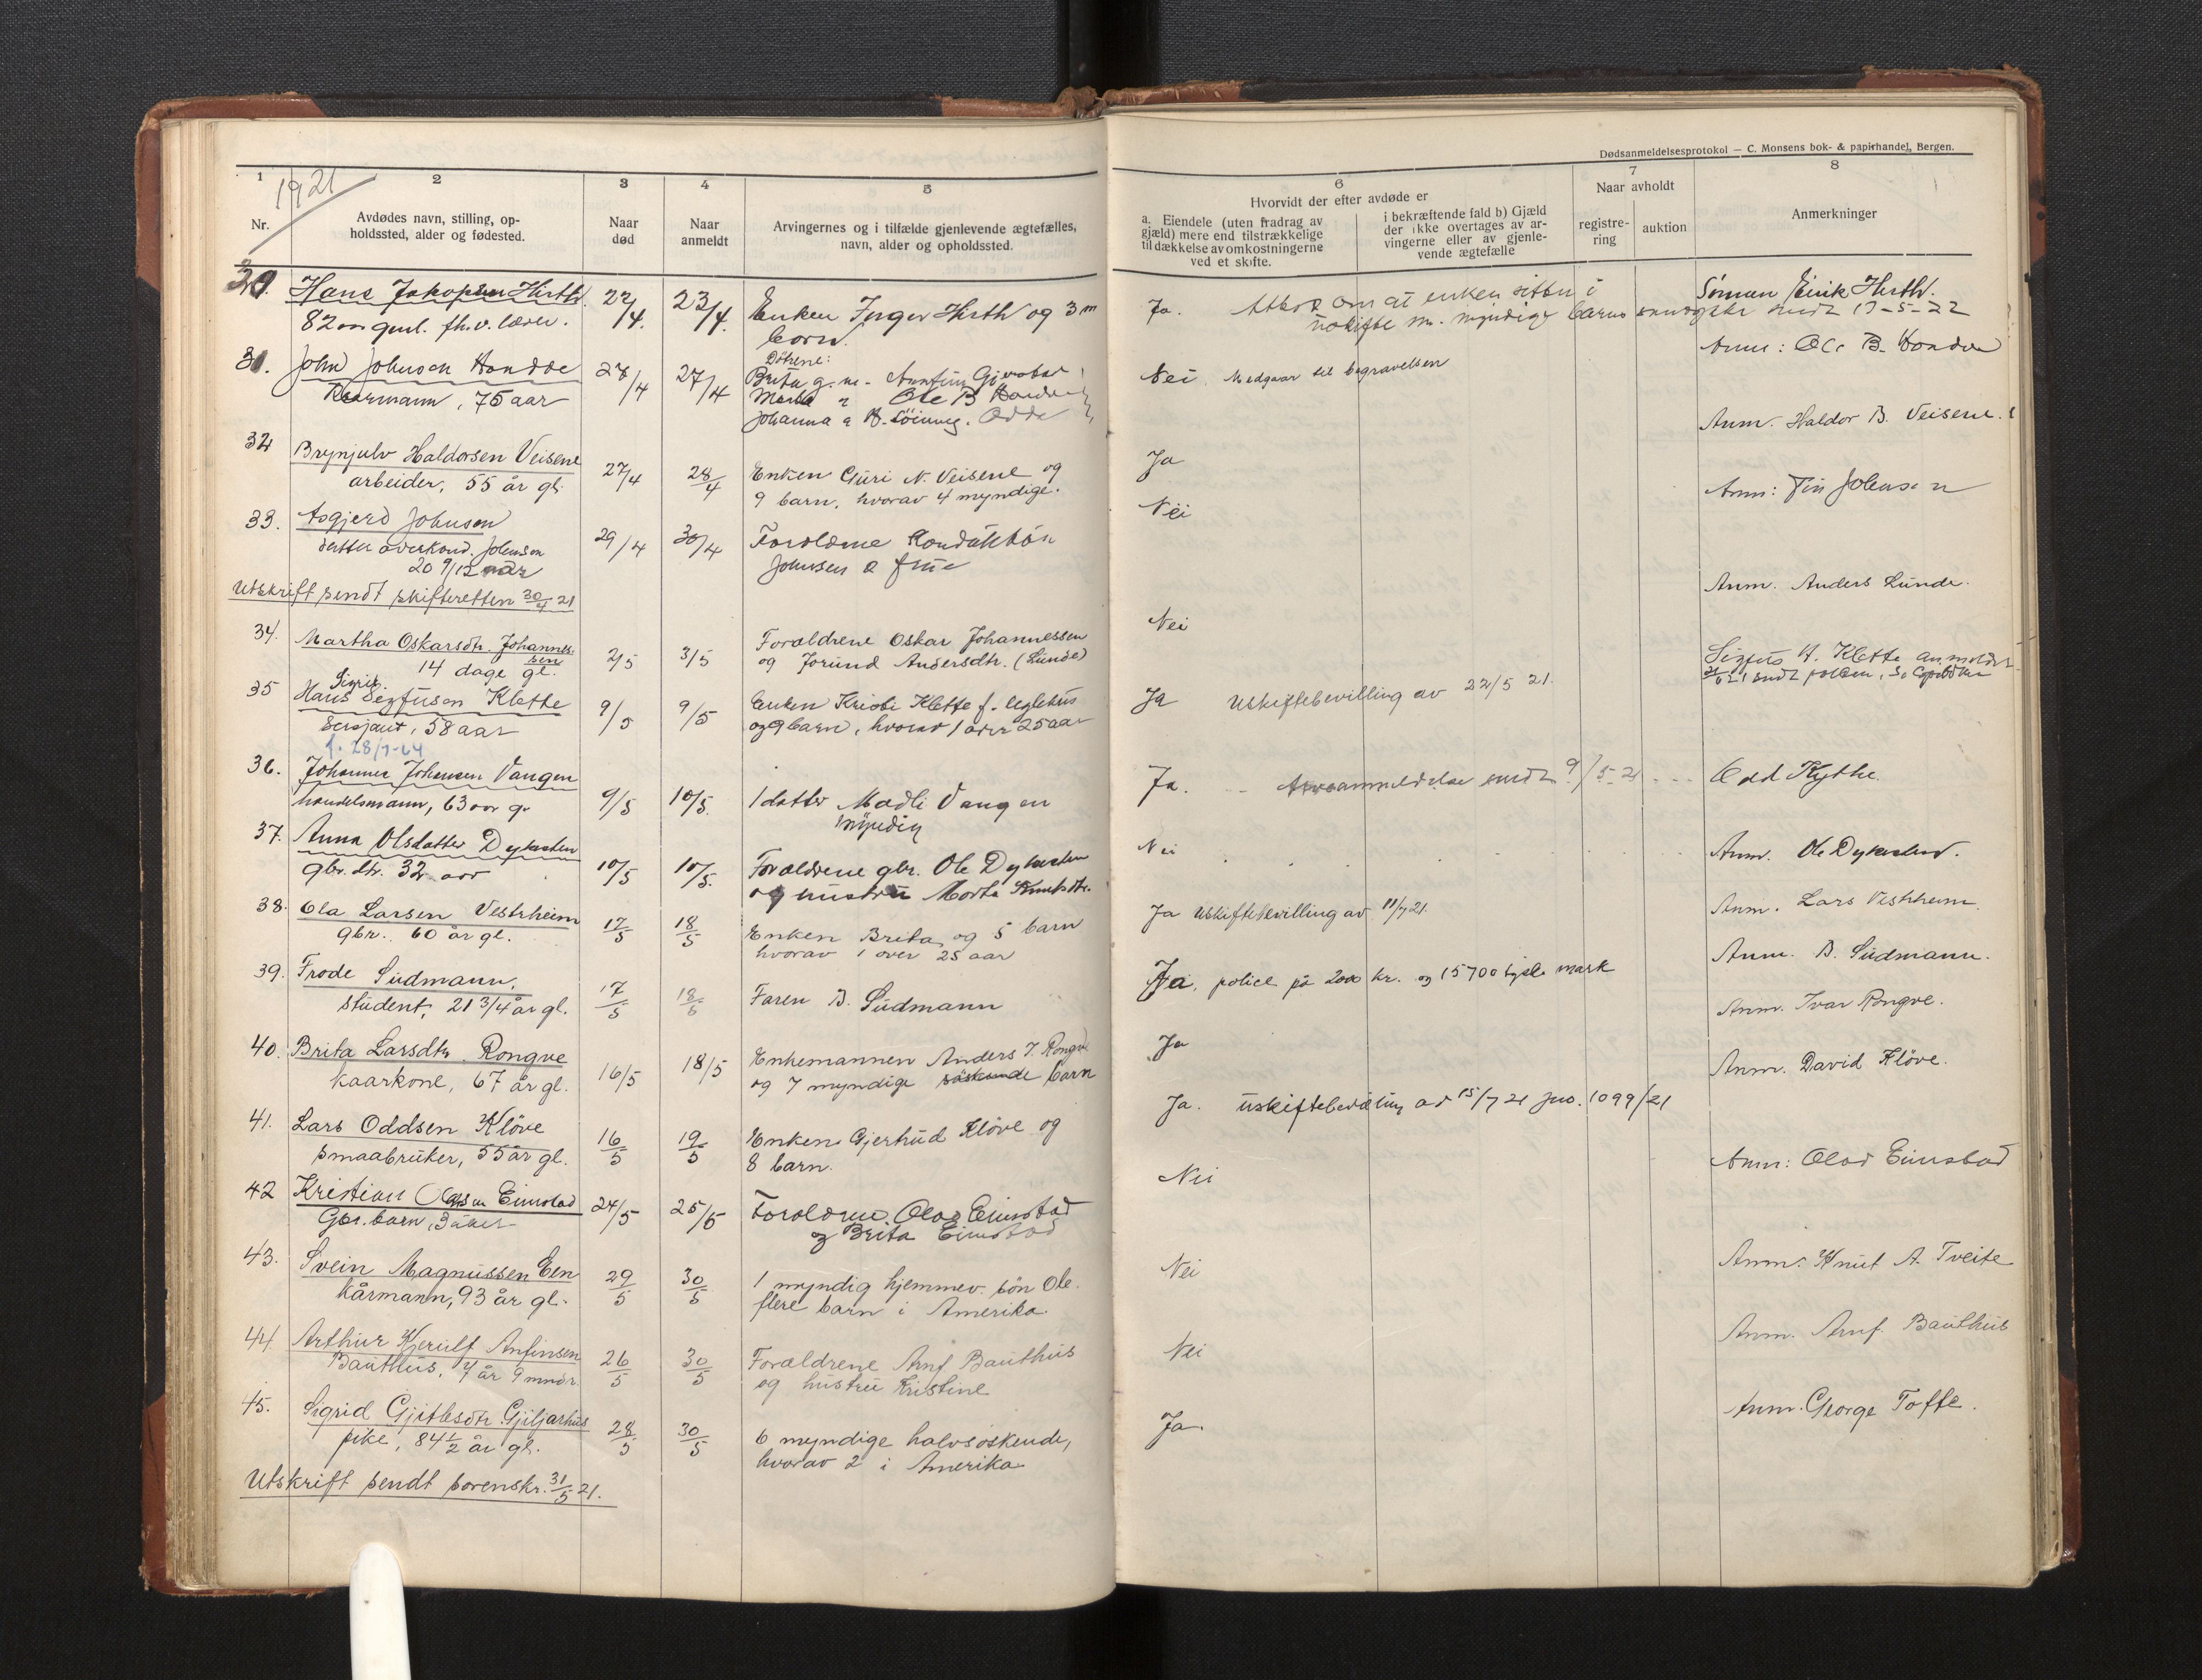 Dødsanmeldelsesprotokol — C. Monsens bok- & papirhandel, Bergen.
1921
1
Nr.
2
Avdødes navn, stilling, op-
holdssted, alder og fødested.
3
Naar
død
4
Naar
anmeldt
5
Arvingernes og i tilfælde gjenlevende ægtefælles,
navn, alder og opholdssted.
6
Hvorvidt der efter avdøde er
a. Eiendele (uten fradrag av
gjæld) mere end tilstrækkelige
til dækkelse av omkostningerne
ved et skifte.
i bekræftende fald b) Gjæld
der ikke overtages av ar-
vingerne eller av gjenle-
vende ægtefælle
7
Naar avholdt
registre-
ring
auktion
8
Anmerkninger
30. Hans Jakopsen Hirth. 22/4. 23/4. Enken Inger Hirth og 3 m Ja. om at enken sitter i Sønnen Eirik Hirth.
82 aar gml. fh.v. lærer. born. uskifte m. myndige barns sendt 13-5-22
31. John Johnsen Hondve 27/4 27/4 Døtrene: Nei. Medgaar til begravelsen Anm: Ole B. Hondve
Kaarmann, 75 aar Brita g. m.
Ole B Hondve
Johanna Odda
32 Brynjulv Haldorsen Veisene 27/4 28/4 Enken Guri N. Veisene og Ja Anm. Haldor B. Veisene.
arbeider, 55 år gl. 9 barn, hvorav 4 myndige.
33. Asgjerd Johnsen 29/4 30/4 Forældrene Nei Anm: Johnsen
datter av Johnsen Johnsen & frue
20 9/12 aar
Utskrift sendt skifteretten 30/4 21
34. Martha Oskarsdtr. Johannes- 2/5 3/5 Forældrene Oskar Johannessen Nei Anm. Anders Lunde.
sen
14 dage gl. og Jorund Andersdtr. (Lunde)
35 Hans Sigfusson Klette 9/5 9/5 Enken Klette f. Ja Uskiftebevilling av 22/5 21. Sigfus H. Klette anmeldt
Sersjant, 58 aar og 9 barn, hvorav 1 over 25 aar
f. 28/7-64
36. Johannes Johansen Vangen 9/5 10/5. 1 datter Madli Vangen Ja. sendt 9/5-21 Odd Kythe.
handelsmann, 63 aar g. myndig
37. Anna Olsdatter Dykesten 10/5 10/5. Forældrene gbr. Ole Dykesten Nei Anm. Ole Dykesten.
gbr. dtr. 32 aar og hustru Marta Knutsdtr.
38. Ola Larsen Vestrheim 17/5 18/5 Enken Brita og 5 barn Ja Uskiftebevilling av 11/7 21. Anm. Lars Vestrheim.
gbr. 60 år gl. hvorav 1 over 25 aar
39. Frode Sudmann, 17/5 18/5 Faren B. Sudmann Ja, police på 2000 kr. og 15700 tyske mark Anm. B. Sudmann.
student, 21 3/4 år gl.
40. Brita Larsdtr. Rongve 16/5 18/5 Enkemannen Anders I. Rongve Ja Anm. Ivar Rongve.
kaarkone, 67 år gl. og 7 myndige søskende barn
41. Lars Oddsen Kløve 16/5 19/5 Enken Gjertrud Kløve og Ja. uskiftebevilling av 15/7 21 jno. 1099/21 Anm. David Kløve.
smaabruker, 55 år gl. 8 barn.
42 Kristian Olavsen Eimstad 24/5 25/5 Forældrene Olav Eimstad Nei Anm: Olav Eimstad
Gbr. barn, 3 uker og Brita Eimstad
43. Svein Magnussen Een 29/5 30/5 1 myndig hjemmev. søn Ole. Nei Anm: Knut A. Tveite
kårmann, 93 år gl. flere barn i Amerika.
44. Arthur Kjerulf Anfinsen 26/5 30/5 Forældrene Anf. Bauthus Nei Anm. Anf. Bauthus
Bauthus, 4 år 9 mndr. og hustru Kristine
45. Sigrid Gjitlesdtr. Gjiljarhus 28/5 30/5 6 myndige halvsøskende, Ja. Anm. George Tofte.
pike, 84 1/2 år gl. hvorav 2 i Amerika
Utskrift sendt sorenskr. 31/5 21.